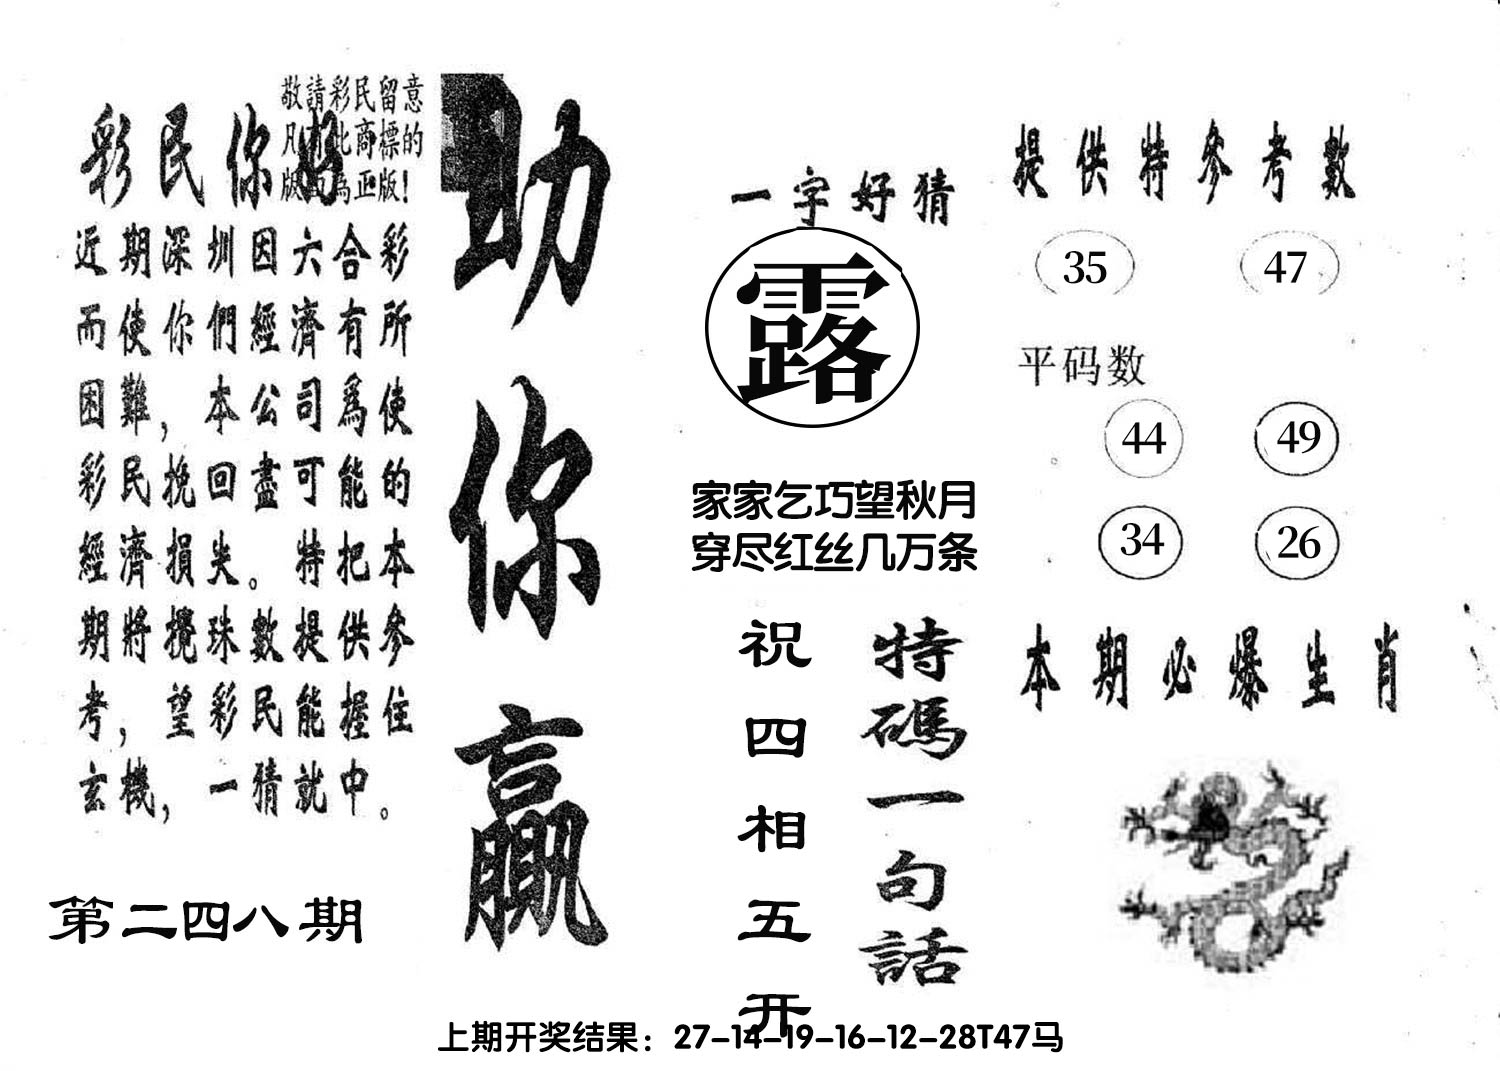 敬請彩民留意
凡有此商標的
版面為正版！
彩民你好
近期深圳因六合彩
而使你們經濟有所
困難，本公司爲使
彩民挽回盡可能的
經濟損失。特把本
期將攪珠數提供參
考，望彩民能握住
玄機，一猜就中。
第二四八期
助你赢
一字好猜
露
家家乞巧望秋月
穿尽红丝几万条
特碼一句話
祝四相五开
提供特參考數
35 47
平码数
44 49
34 26
本期必爆生肖
上期开奖结果：27-14-19-16-12-28T47马